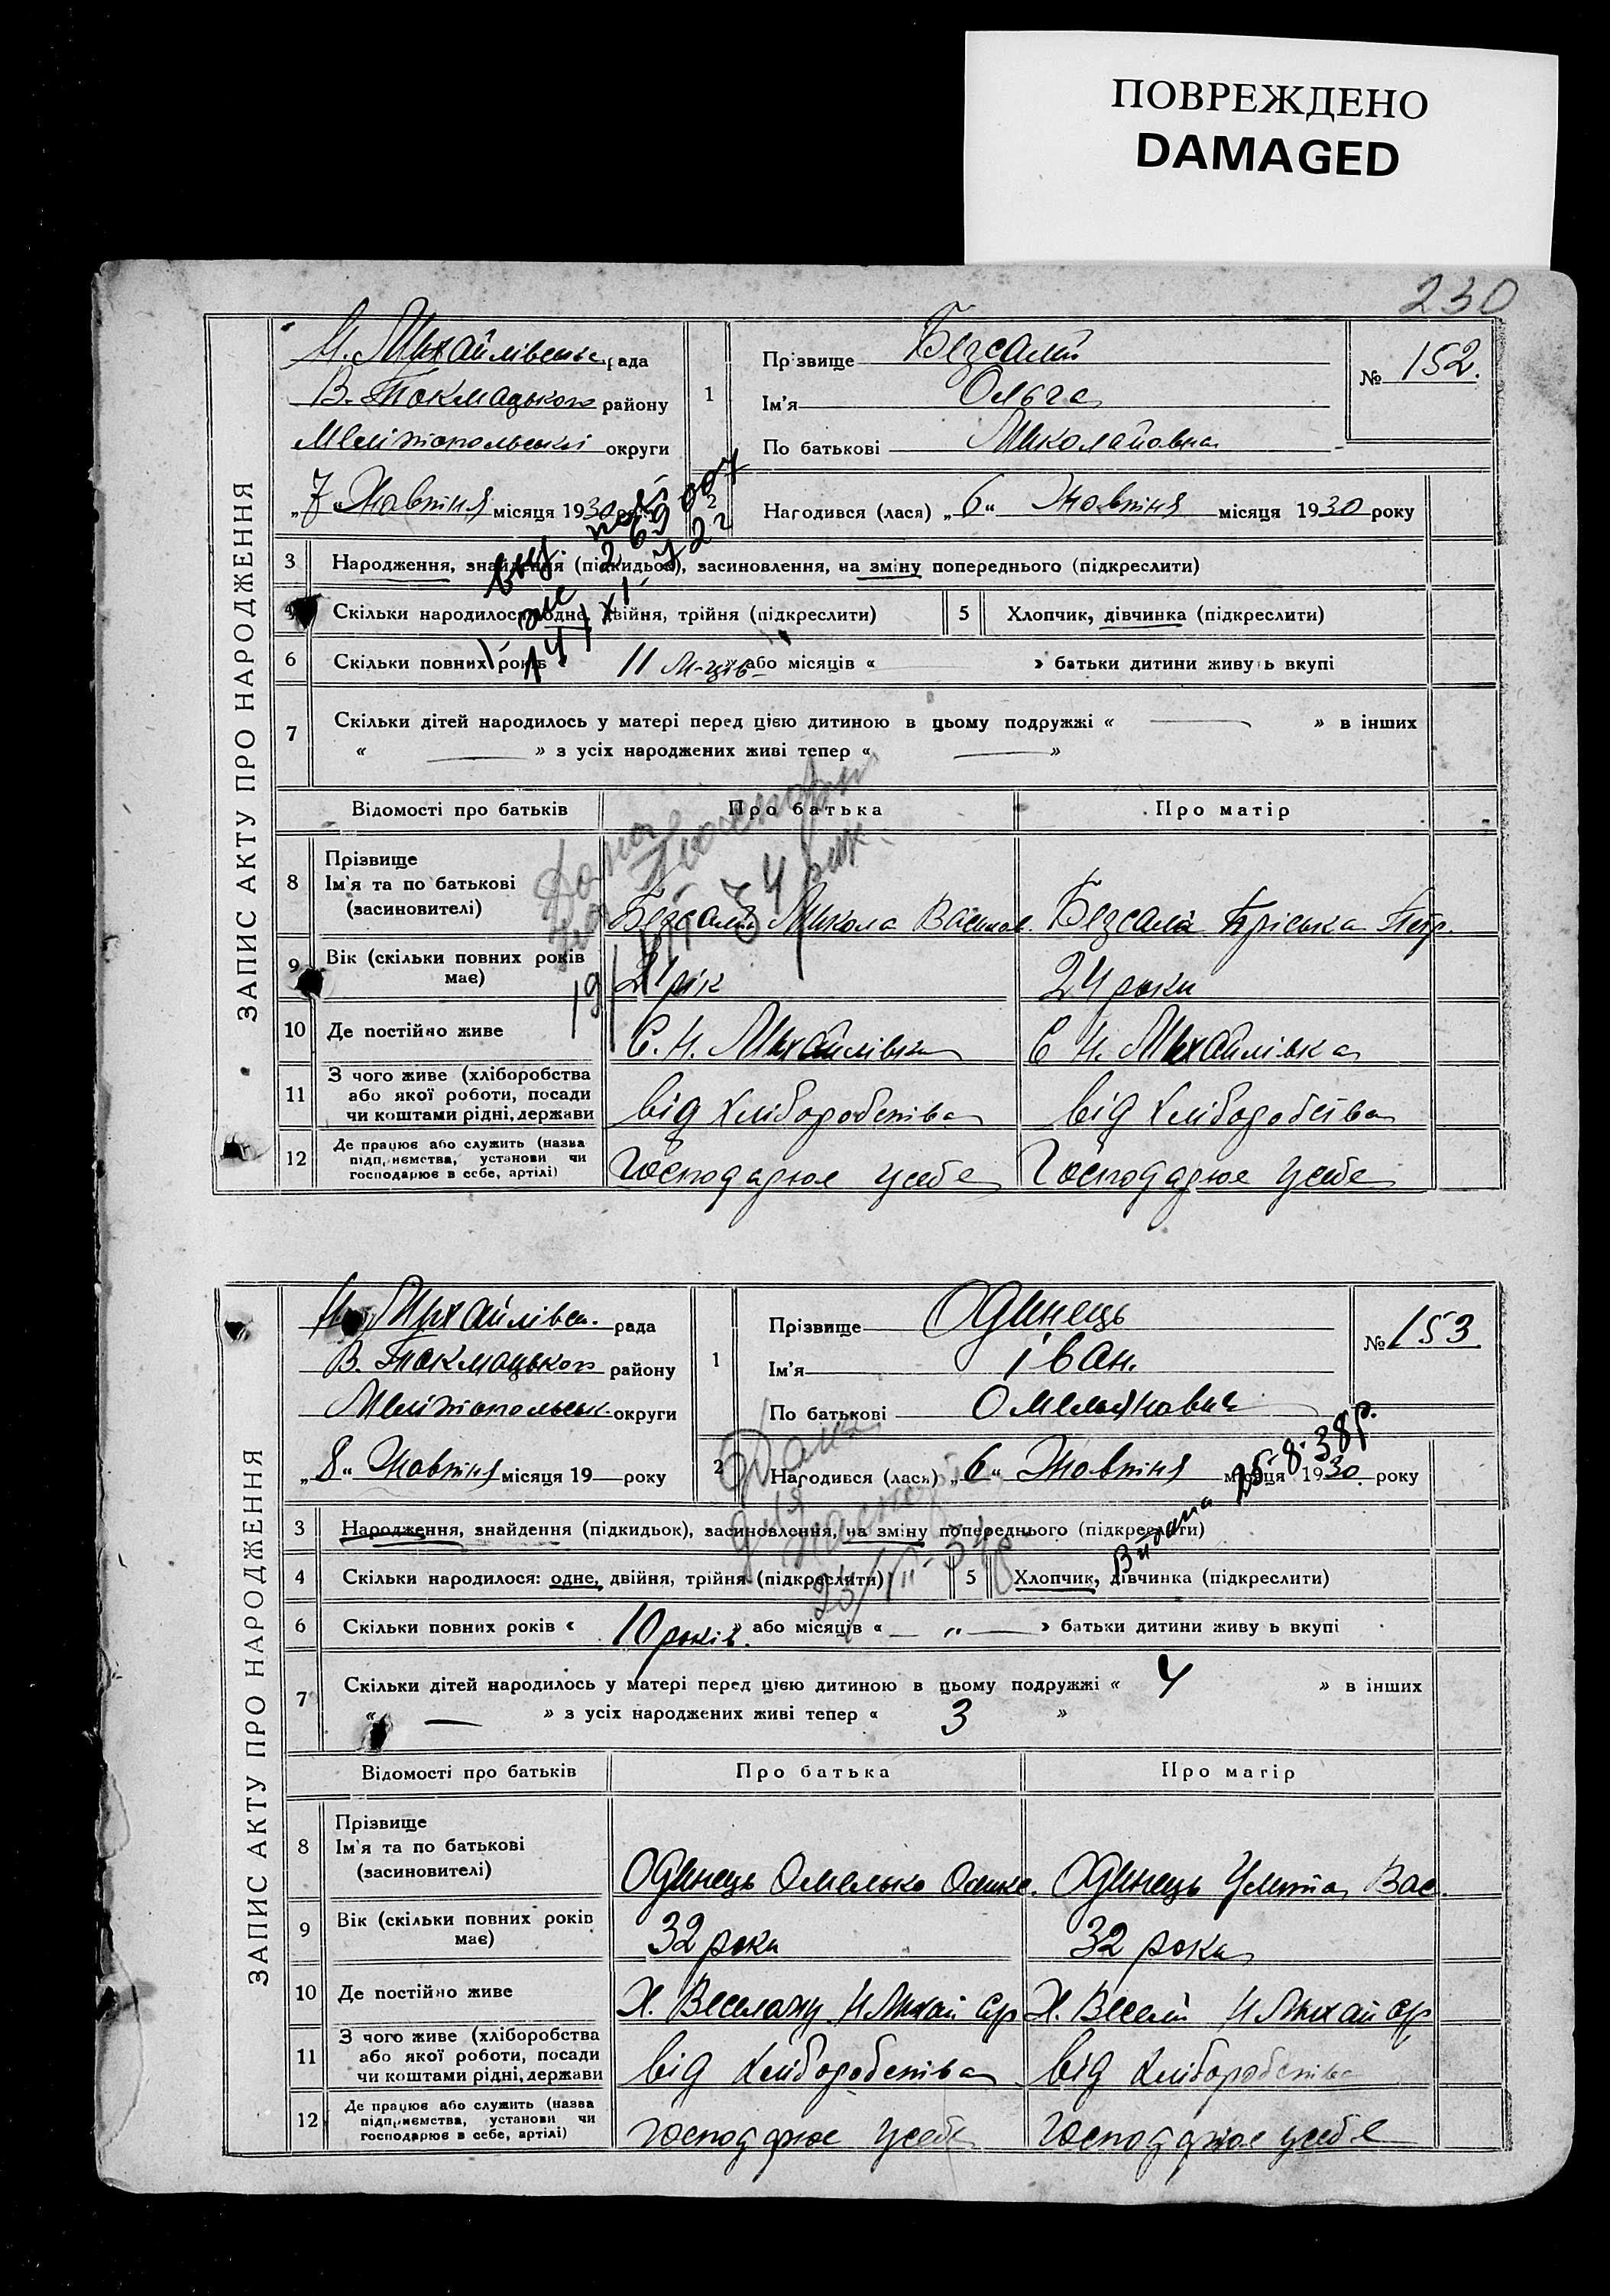 ПОВРЕЖДЕНО
DAMAGED
230
ЗАПИС АКТУ ПРО НАРОДЖЕННЯ
Н. Михайлівськ. рада
В. Токмацького району
Мелітопольської округи
„7 Жовтня місяця 1930 року
1
Прізвище Безсалий
Ім'я Ольга
По батькові Миколаївна
№ 152.
2
Народився (лася) „6“ Жовтня місяця 1930 року
3 Народження, знайдення (підкидьок), засиновлення, на зміну попереднього (підкреслити)
4 Скільки народилося: одне, двійня, трійня (підкреслити)
5 Хлопчик, дівчинка (підкреслити)
6 Скільки повних років « 11 м-ців або місяців « » батьки дитини живуть вкупі
7 Скільки дітей народилось у матері перед цією дитиною в цьому подружжі « — » в інших
« — » з усіх народжених живі тепер « — »
Відомості про батьків Про батька Про матір
8 Прізвище
Ім'я та по батькові
(засиновителі)
Безсалий Микола Васильов. Безсала Пріська Петр.
9 Вік (скільки повних років
має)
21 рік 24 роки
10 Де постійно живе С. Н. Михайлівка С Н. Михайлівка
11 З чого живе (хліборобства
або якої роботи, посади
чи коштами рідні, держави
від хліборобства від хліборобства
12 Де працює або служить (назва
підприємства, установи чи
господарює в себе, артілі)
Господарює у себе Господарює у себе
19/VII 34 рик.
ЗАПИС АКТУ ПРО НАРОДЖЕННЯ
Н. Михайлівсь. рада
В. Токмацького району
Мелітопольськ. округи
„8“ Жовтня місяця 19— року
1
Прізвище Одинець
Ім'я Іван.
По батькові Омелянович
№ 153
2
Народився (лася) „6“ Жовтня місяця 1930 року
Видана 25-8-38р.
3 Народження, знайдення (підкидьок), засиновлення, на зміну попереднього (підкреслити)
4 Скільки народилося: одне, двійня, трійня (підкреслити)
5 Хлопчик, дівчинка (підкреслити)
6 Скільки повних років « 10 років. » або місяців « — „ — » батьки дитини живуть вкупі
7 Скільки дітей народилось у матері перед цією дитиною в цьому подружжі « 4 » в інших
« — » з усіх народжених живі тепер « 3 »
Відомості про батьків Про батька Про матір
8 Прізвище
Ім'я та по батькові
(засиновителі)
Одинець Омелько Одинець Улита Вас.
9 Вік (скільки повних років
має)
32 роки 32 роки
10 Де постійно живе Х. Н Михай с/р Х. Веселий Н Михай с/р
11 З чого живе (хліборобства
або якої роботи, посади
чи коштами рідні, держави
від хліборобства від хліборобства
12 Де працює або служить (назва
підприємства, установи чи
господарює в себе, артілі)
господарює у себе господарює у себе